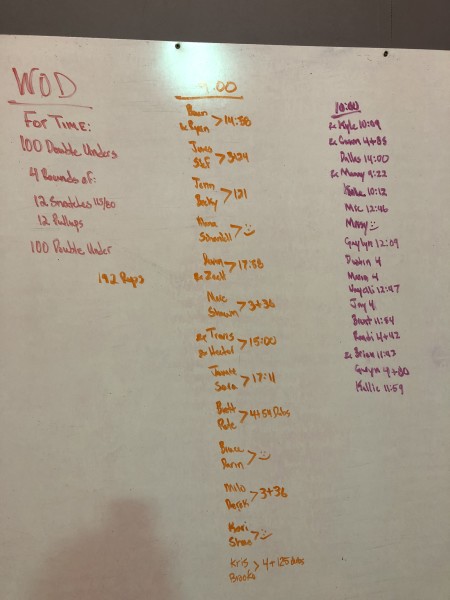 WOD
For Time:
100 Double Unders
4 Rounds of:
12 Snatches 115/80
12 Pullups
100 Double Under
192 Reps
9:00
Rx Ryan > 14:58
James
Stef > 3+24
Jenn
Becky > 121
> :)
Rx Zach > 17:58
Shawn > 3+36
Rx Travis
Rx Hector > 15:00
Sara > 17:11
Brett
Pete > 4+54 Dubs
Bruce
Darin > :)
Milo
Derek > 3+36
Kori
> :)
Kris
Brooke > 4+125 dubs
10:00
Rx Kyle 10:09
Rx 4+88
Dallas 14:00
Rx Manny 9:22
10:12
12:46
Missy :)
Gaylyn 12:09
Dustin 4
4
12:47
Jay 4
11:54
Randi 4+42
Rx Brian 11:43
Gwyn 4+80
Kellie 11:59